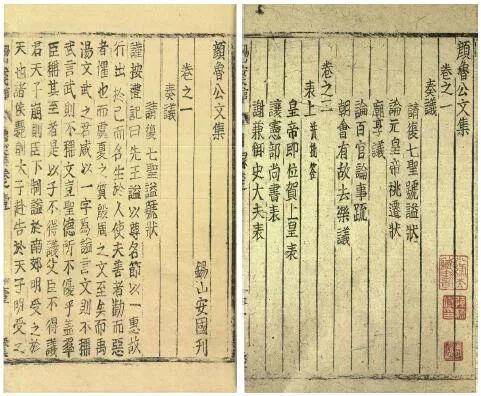 顏魯公文集
卷之一
奏議
請復七聖號謚狀
論元皇帝祧遷狀
廟享議
論百官論事疏
朝會有故去樂議
卷之二
表上
皇帝即位賀上皇表
讓憲部尚書表
謝兼御史大夫表
顏魯公文集
錫山安國刊
卷之一
奏議
請復七聖謚號狀
謹按禮記曰先王謚以尊名節以一惠故
行出於己而名生於人使夫善者勸而惡
者懼也而虞夏之質殷周之文至矣而禹
湯文武之君咸以一字為謚言文則不稱
武言武則不稱文豈聖德所不優乎蓋羣
臣稱其至者是以子不得議父臣不得議
君天子崩則臣下制謚於南郊明受之於
天也諸侯薨則太子赴告於天子明受之